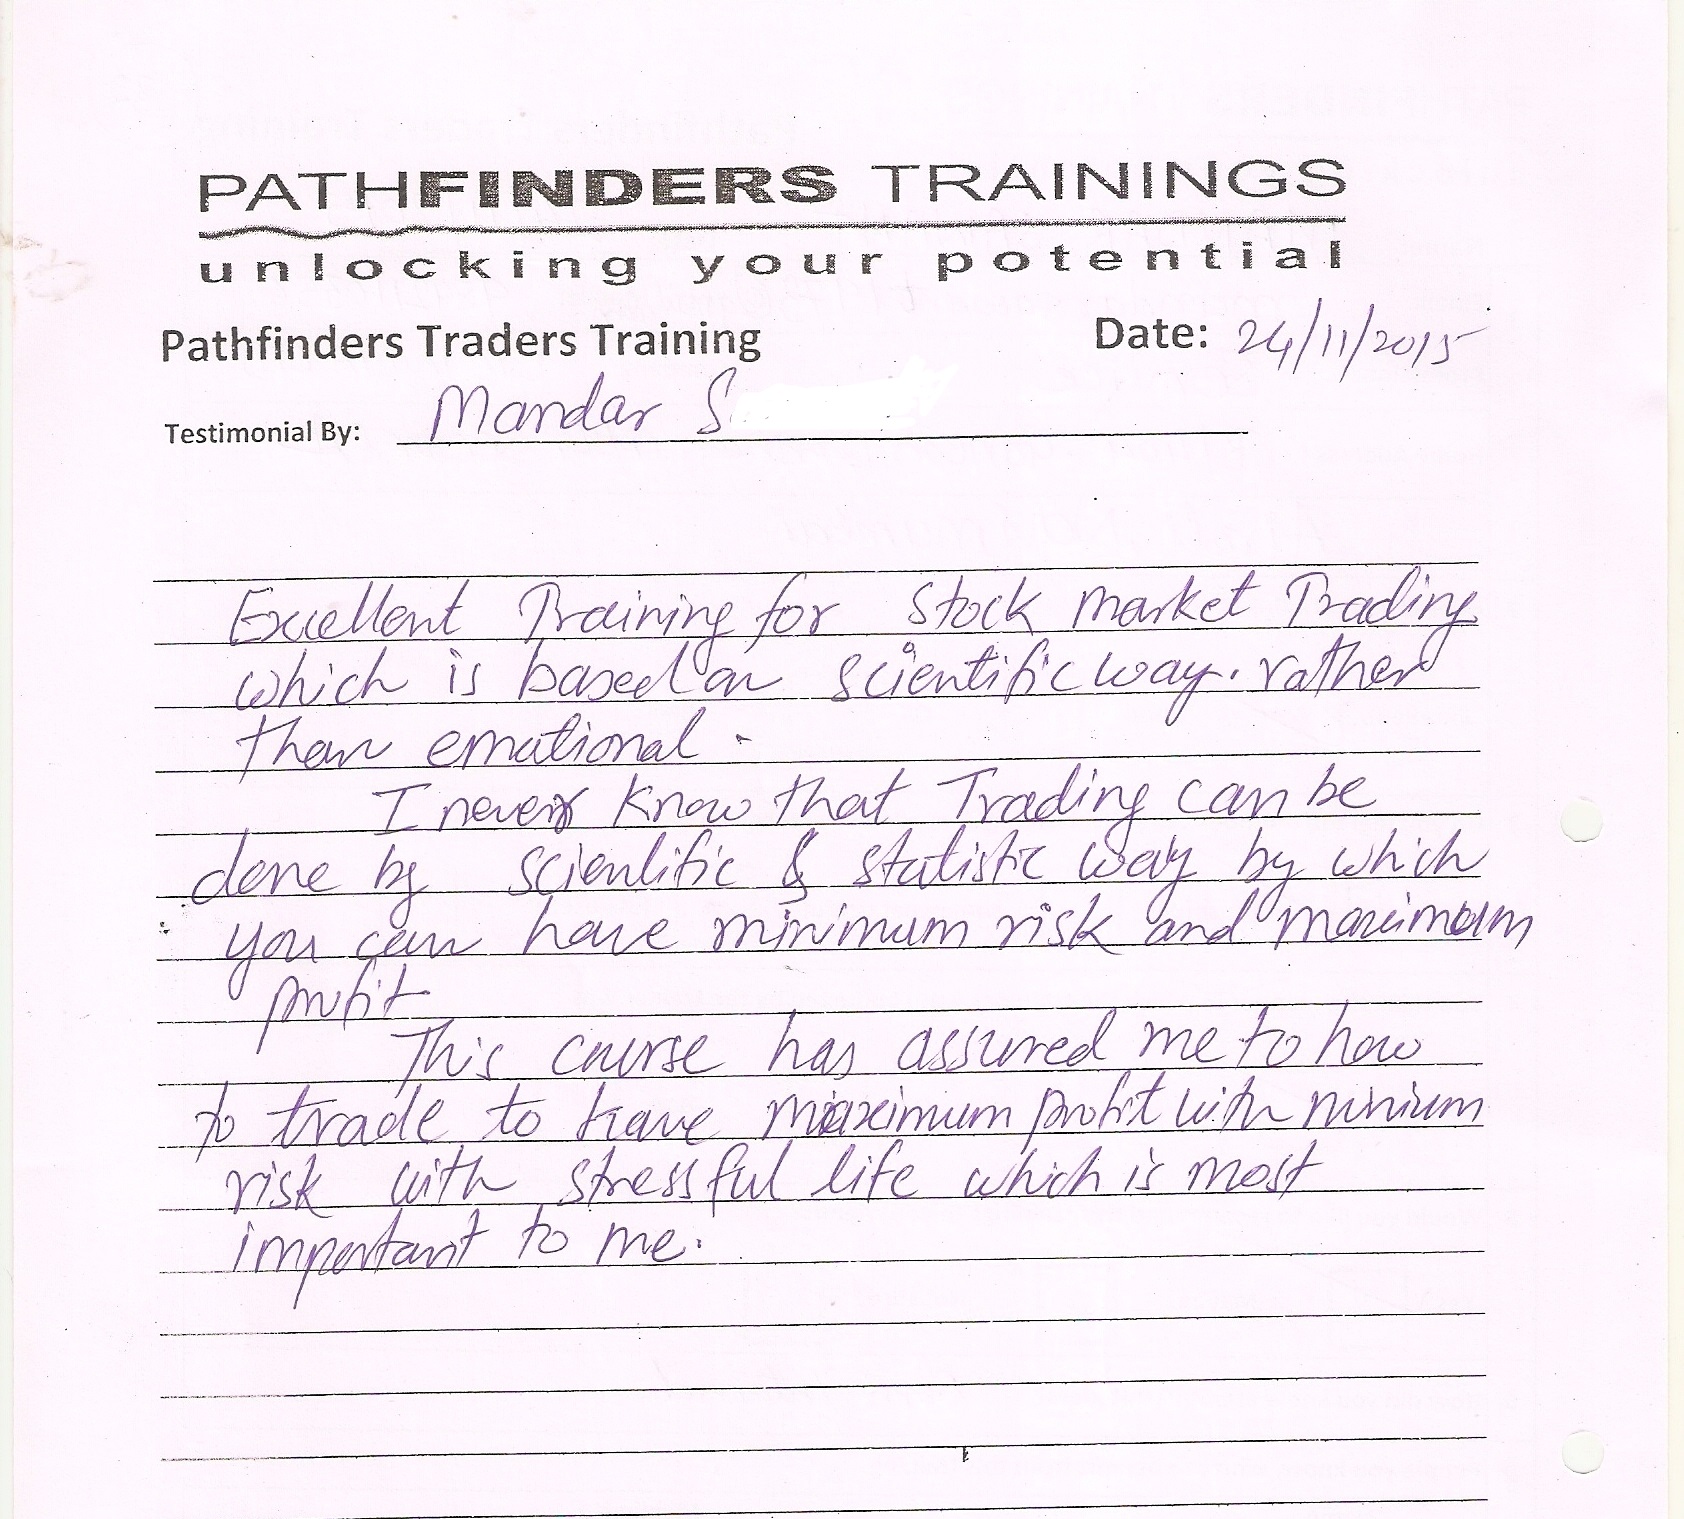 PATHFINDERS TRAININGS
unlocking your potential
Pathfinders Traders Training Date: 24/11/2015
Testimonial By: Mandar S
Excellent Training for Stock Market Trading
which is based on scientific way. rather
than emational.
I never know that Trading can be
done by scientific & statistic way by which
you can have minimum risk and maximum
profit
This course has assured me to how
to trade to have maximum profit with minium
risk with stressful life which is most
important to me.